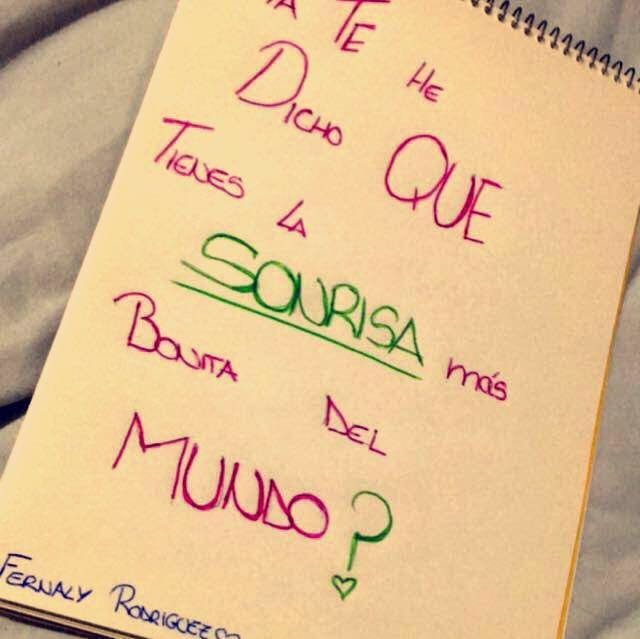 YA TE HE
DICHO QUE
TIENES LA
SONRISA más
BONITA DEL
MUNDO?
FERNALY RODRIGUEZ